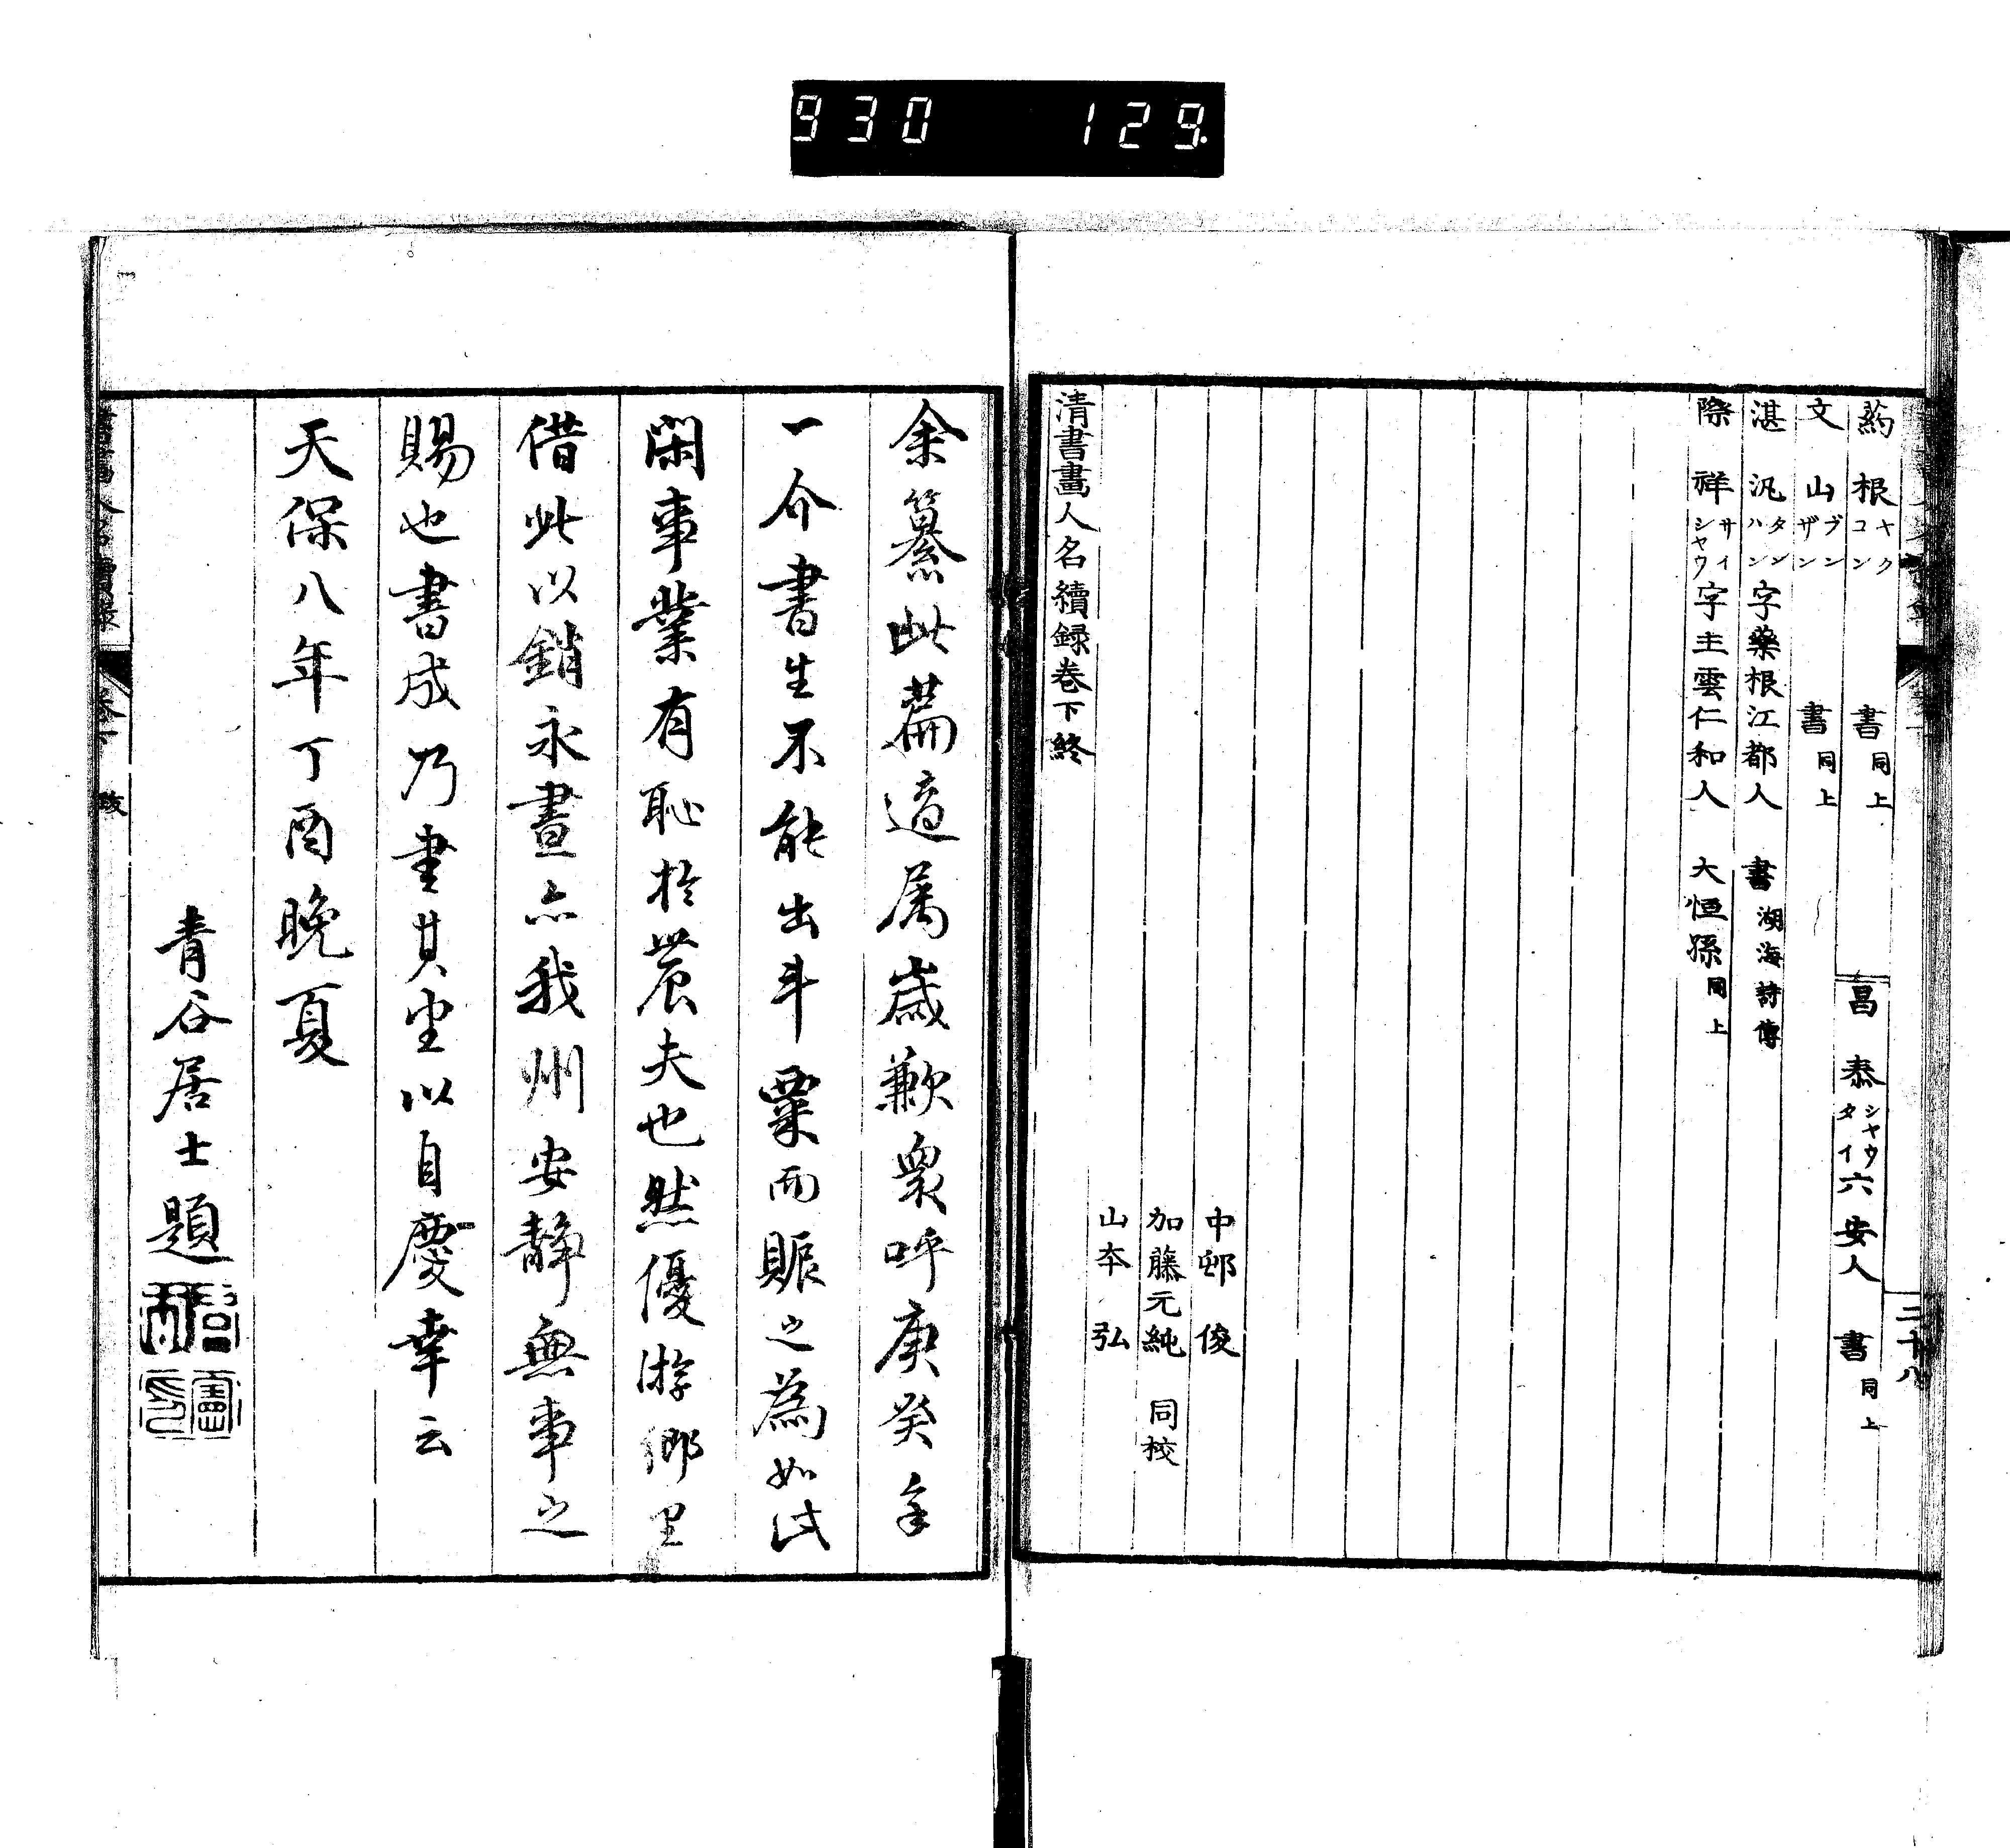 930 129
葯 根 ヤクコン 書 同上 昌 泰 シヤウタイ 六安人 書 同上
文 山 ブンザン 書 同上
湛 汎 タンハン 字藥根江都人 書 湖海詩傳
際 祥 サイシヤウ 字主雲仁和人 大恒孫 同上
二十八
中邨 俊
加藤元純 同校
山本 弘
清書畫人名續録卷下終
余纂此篇適属歳歉衆呼庚癸余
一介書生不能出斗粟而賑之為如此
閑事業有恥於農夫也然優游郷里
借此以銷永晝亦我州安静無事之
賜也書成乃書其由以自慶幸云
天保八年丁酉晩夏
青谷居士題
卷下 跋